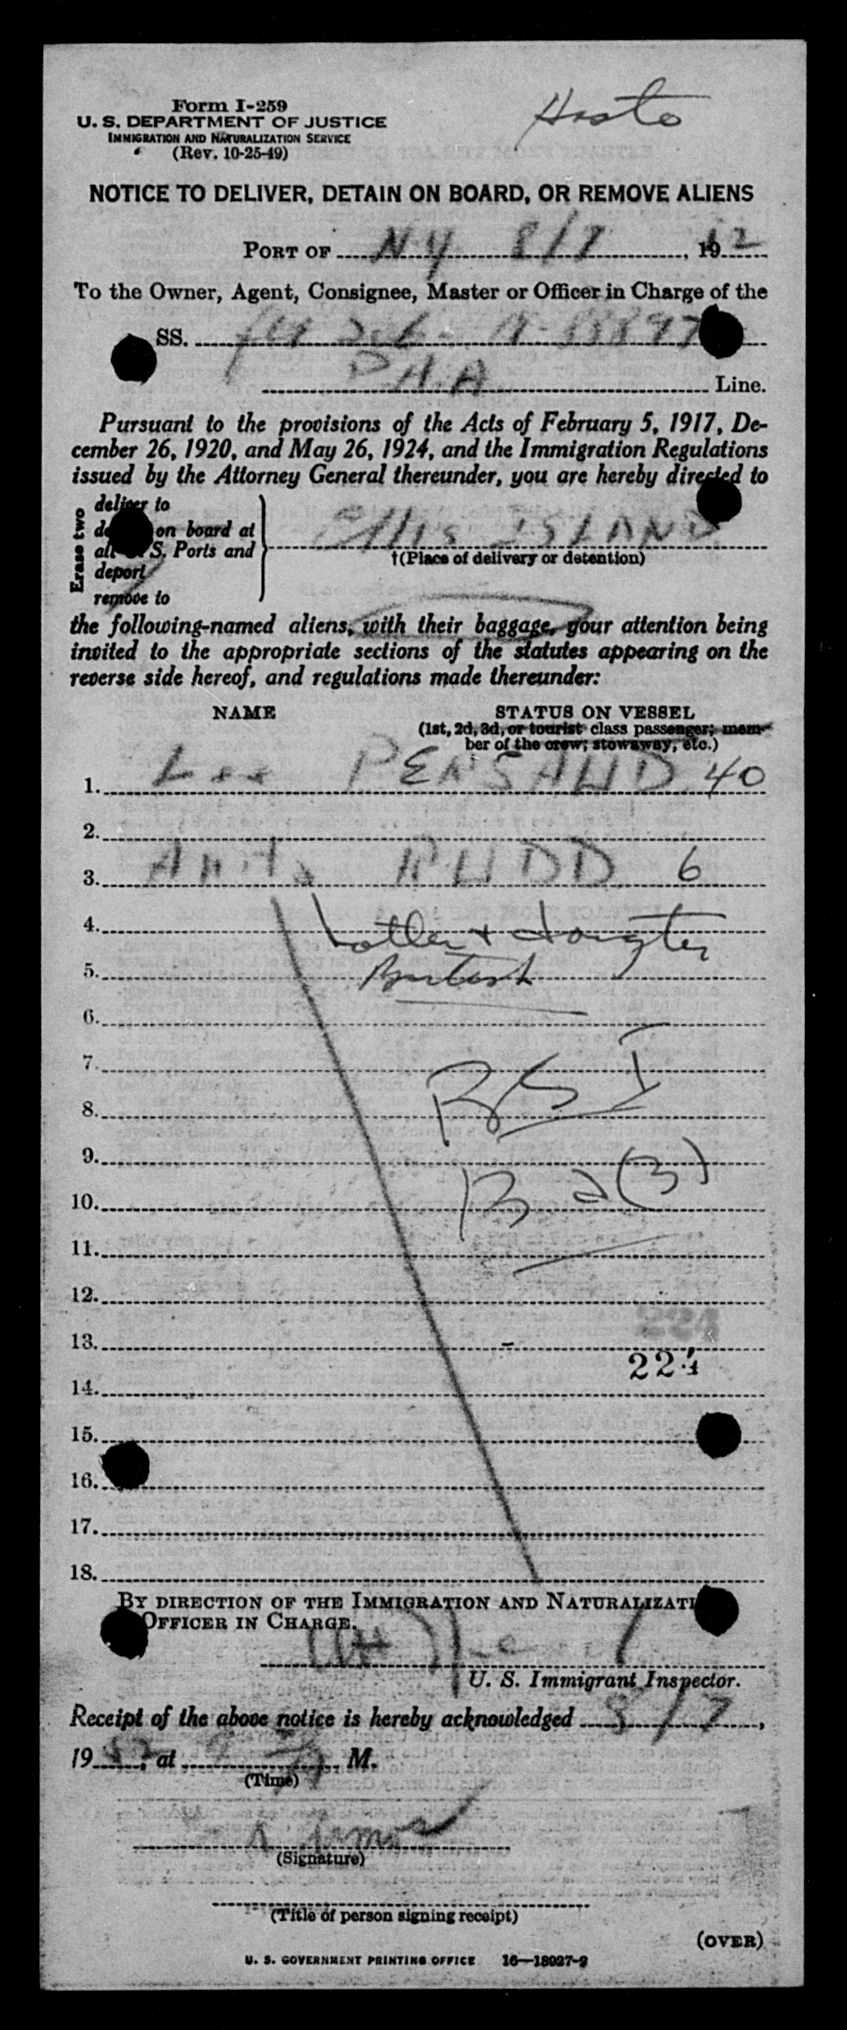 Form I-259
U. S. DEPARTMENT OF JUSTICE
IMMIGRATION AND NATURALIZATION SERVICE
(Rev. 10-25-49)
NOTICE TO DELIVER, DETAIN ON BOARD, OR REMOVE ALIENS
PORT OF N Y 8/7, 19
To the Owner, Agent, Consignee, Master or Officer in Charge of the
SS.
P A A Line.
Pursuant to the provisions of the Acts of February 5, 1917, De-
cember 26, 1920, and May 26, 1924, and the Immigration Regulations
issued by the Attorney General thereunder, you are hereby directed to
Erase two
deliver to
on board at
S. Ports and
deport
remove to
Ellis ISLAND
†(Place of delivery or detention)
the following-named aliens, with their baggage, your attention being
invited to the appropriate sections of the statutes appearing on the
reverse side hereof, and regulations made thereunder:
NAME STATUS ON VESSEL
(1st, 2d, 3d, or tourist class passenger; mem-
ber of the crew; stowaway, etc.)
1. 40
2.
3. Anita RUDD 6
4. + daughter
5. British
6.
7. BSI
8.
9.
10. B 2(3)
11.
12.
13. 224
224
14.
15.
16.
17.
18.
BY DIRECTION OF THE IMMIGRATION AND
OFFICER IN CHARGE.
U. S. Immigrant Inspector.
Receipt of the above notice is hereby acknowledged 8/7,
1952, at M.
(Time)
(Signature)
(Title of person signing receipt)
(OVER)
U. S. GOVERNMENT PRINTING OFFICE 16—18027-2